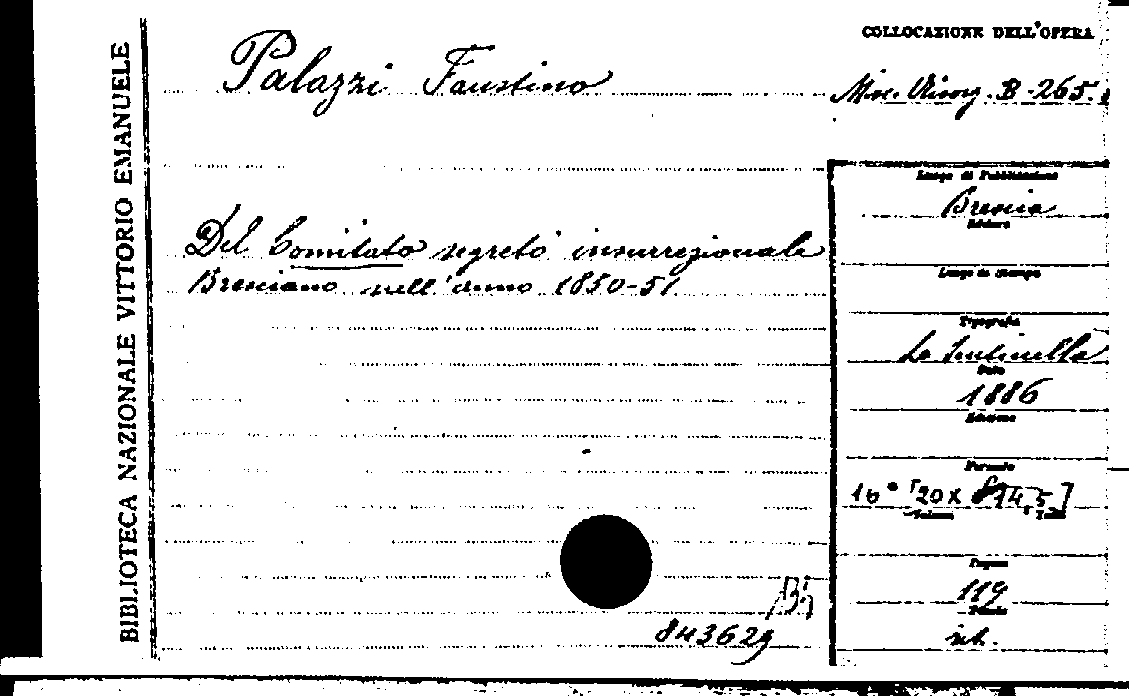 BIBLIOTECA NAZIONALE VITTORIO EMANUELE
Palazzi Faustino
COLLOCAZIONE DELL'OPERA
Misc. Risorg. B. 265.
Del Comitato segreto insurrezionale
Bresciano nell'anno 1850-51
Luogo di Pubblicazione
Brescia
Editore
Luogo di Stampa
Tipografia
La Sentinella
Data
1886
Edizione
Formato
16° [20 x 14,5]
Volume
Pagine
119
843629